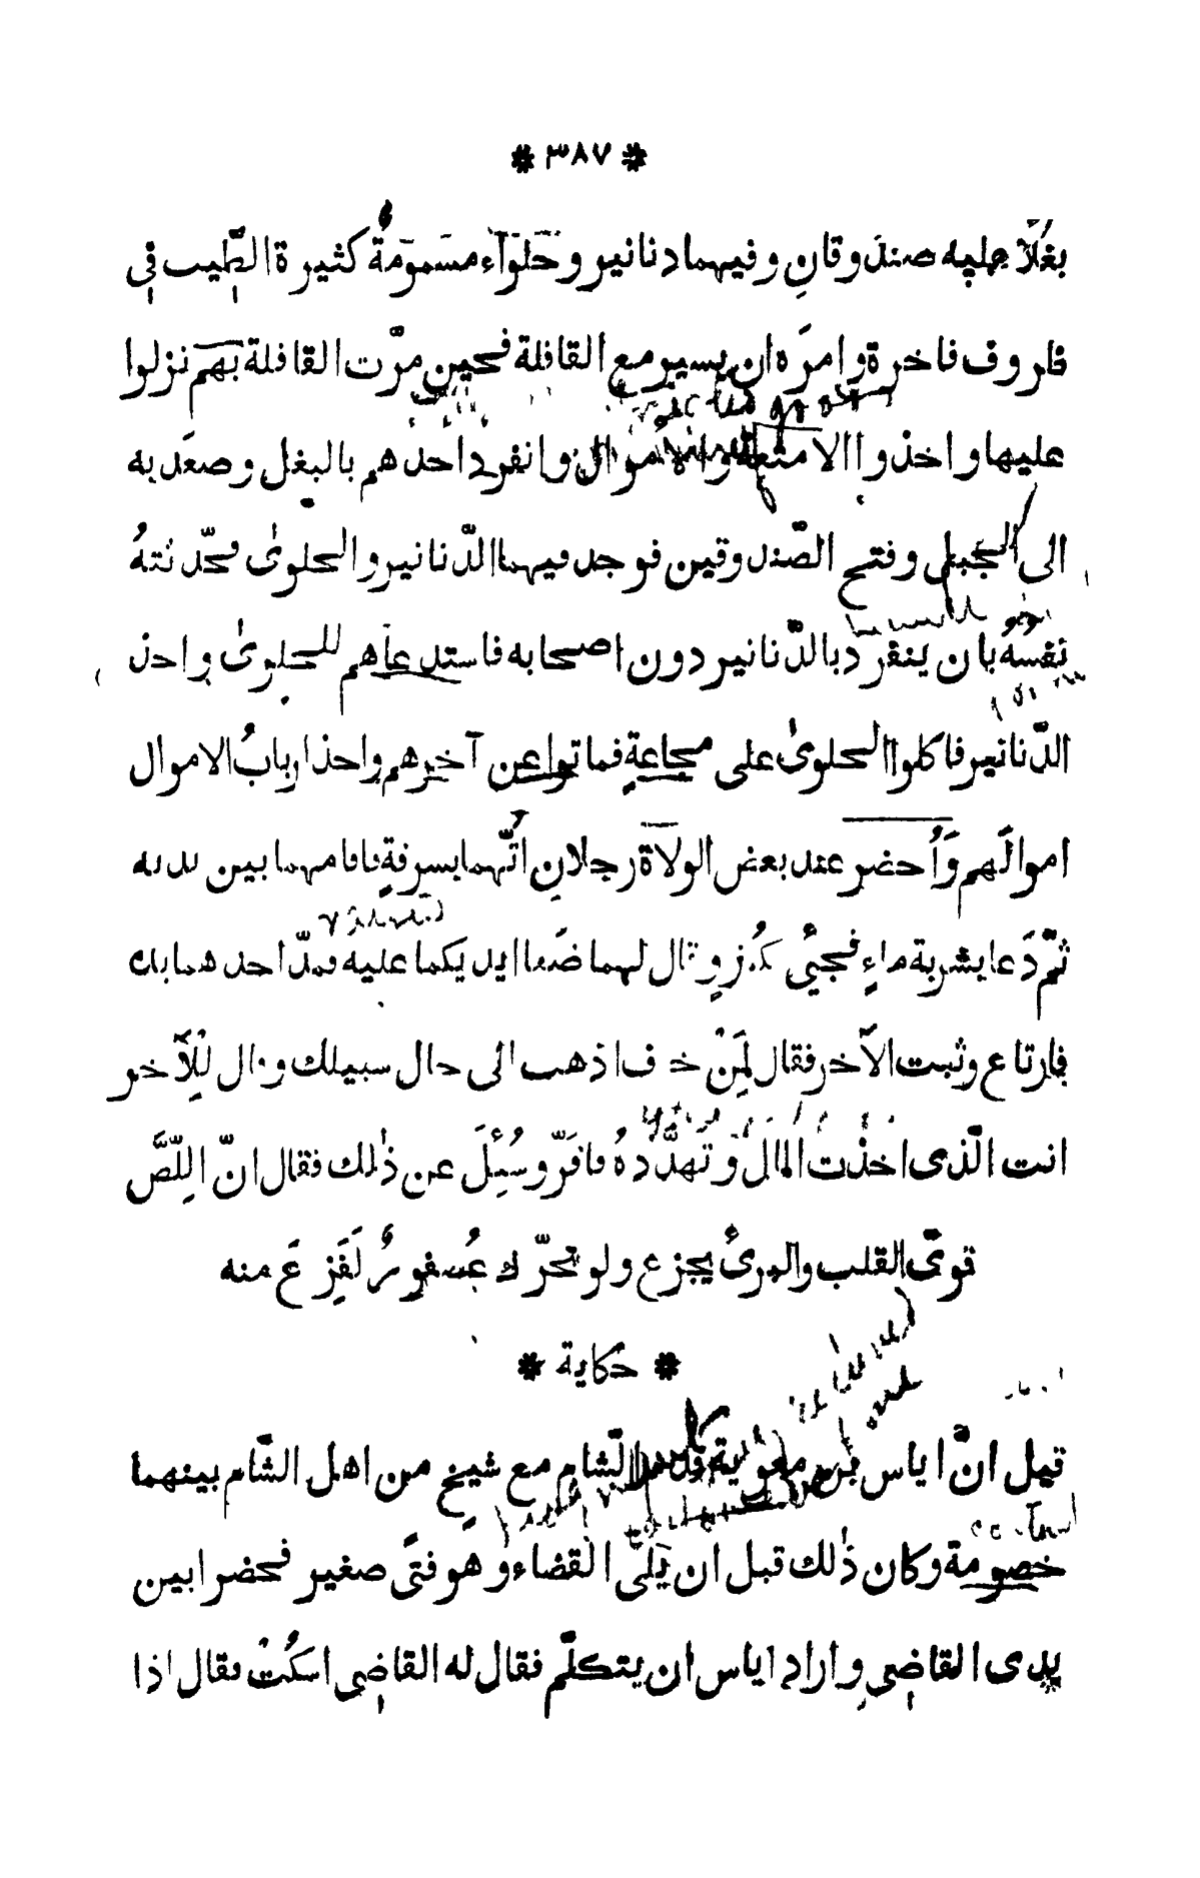 * ٣٨٧ *
بغلاً عليه صندوقانِ وفيهما دنانير وحَلْوَآء مسمومةٌ كثيرة الطّيب في
ظروف فاخرة وامرَه ان يسير مع القافلة فحين مرّت القافلة بهم نزلوا
عليها واخذوا الامتعة والاموال وانفرد احدهم بالبغل وصعَد به
الى الجبل وفتح الصّندوقين فوجد فيهما الدّنانير والحلوىٰ فحدّثتهُ
نفسهُ بان ينفرد بالدّنانير دون اصحابه فاستدعاهم للحلوىٰ واخذ
الدّنانير فاكلوا الحلوىٰ على مجاعةٍ فماتوا عن آخرهم واخذ اربابُ الاموال
اموالَهم وَاُحضر عند بعض الولاة رجلانِ اُتّهما بسرقةٍ فاقامهما بين يديه
ثمّ دَعا بشربة ماءٍ فجيئَ بكُوزٍ وقال لهما ضَعا ايديكما عليه فمدّ احدهما يده
فارتاع وثبت الآخر فقال لِمَنْ خاف اذهب الى حال سبيلك وقال لِلْآخر
انت الّذى اخذْتَ المالَ وَتَهدَّدهُ فاقرّ وسُئِلَ عن ذٰلك فقال انّ اللِّصَّ
قوىّ القلب والبرئُ يجزع ولو تحرّك عُصفورٌ لَفَزِعَ منه
* حكاية *
قيل انَّ اياس بن معٰوية قدم الشّام مع شيخٍ من اهل الشّام بينهما
خصومة وكان ذٰلك قبل ان يَلىَ القضاء وهو فتًى صغير فحضرا بين
يدى القاضى واراد اياس ان يتكلّم فقال له القاضى اسكُتْ فقال اذا